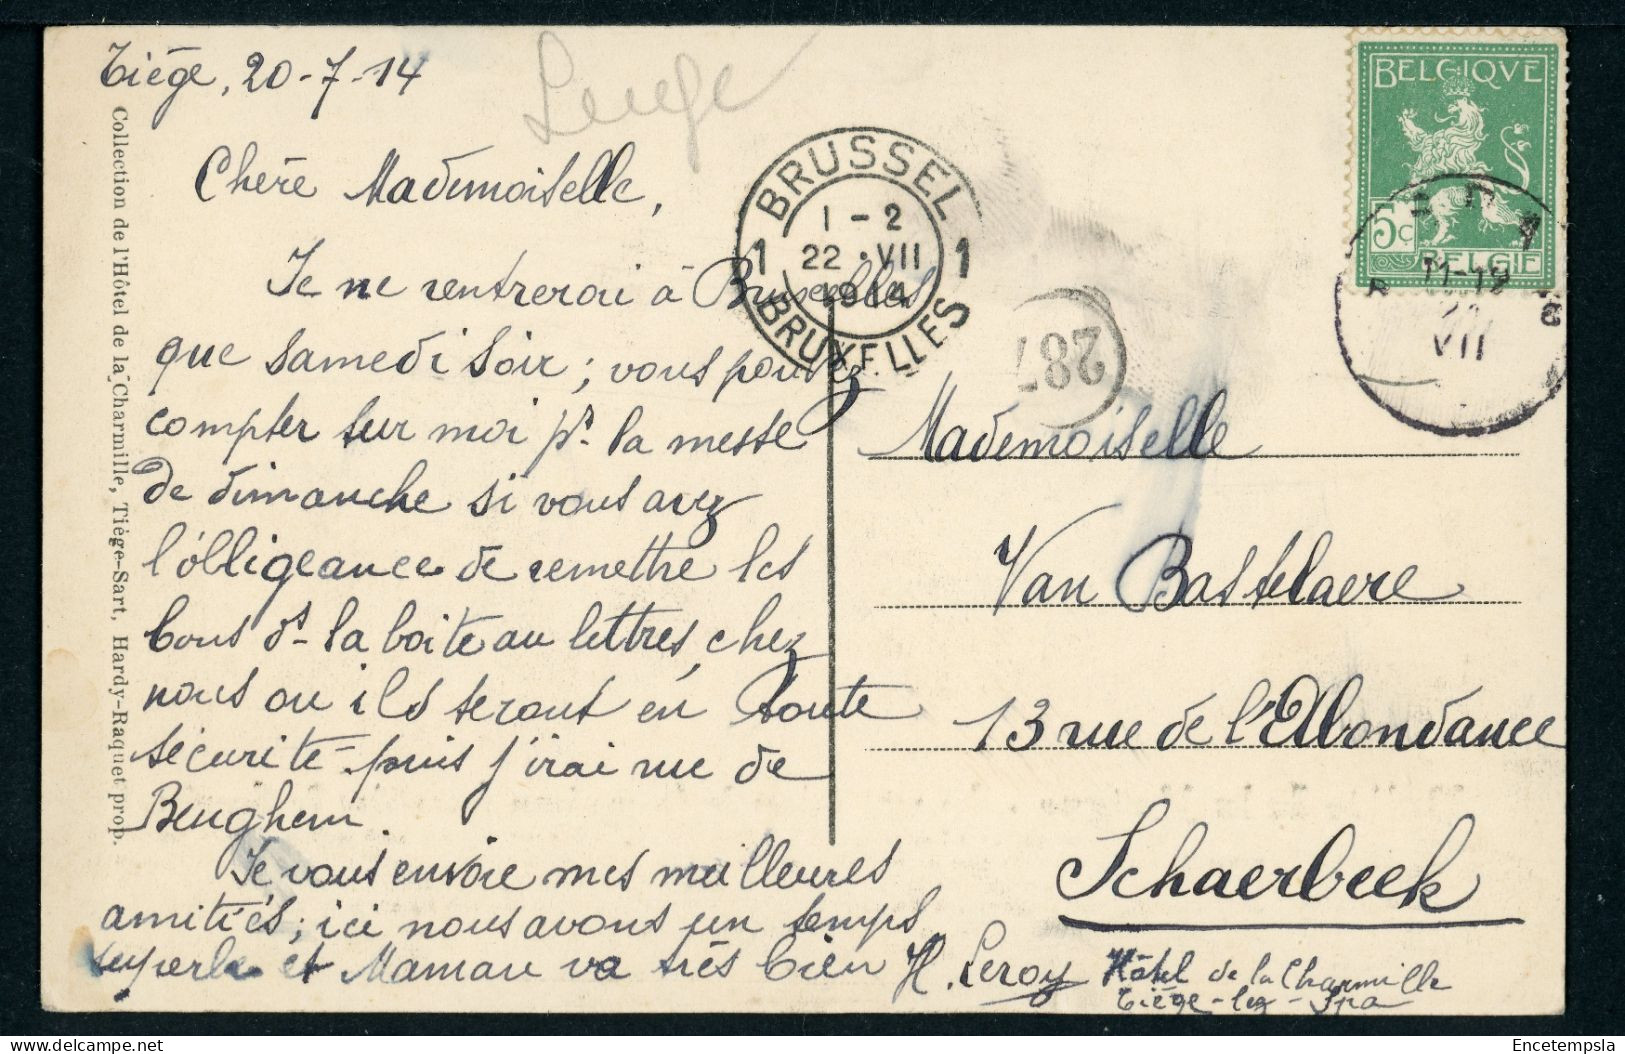 Tiège, 20-7-14
Chère Mademoiselle,
Je ne rentrerai à Bruxelles
que samedi soir; vous pouvez
compter sur moi pr. la messe
de dimanche si vous avez
l'obligeance de remettre les
bons ds- la boite au lettres, chez
nous ou ils seront en toute
sécurité - puis j'irai rue de
Beughem.
Je vous envoie mes meilleures
amitiés; ici nous avons un temps
superbe et Maman va très bien
H. Leroy
Hôtel de la Charmille
Tiège-lez-Spa
Collection de l'Hôtel de la Charmille, Tiège-Sart, Hardy-Raquet prop.
BRUSSEL
1 - 2
1 22 . VII 1
1914
BRUXELLES
287
BELGIQVE
5c
BELGIË
SPA
11-12
VII
Mademoiselle
Van Bastelaere
13 rue de l'Abondance
Schaerbeek
Encetempsla